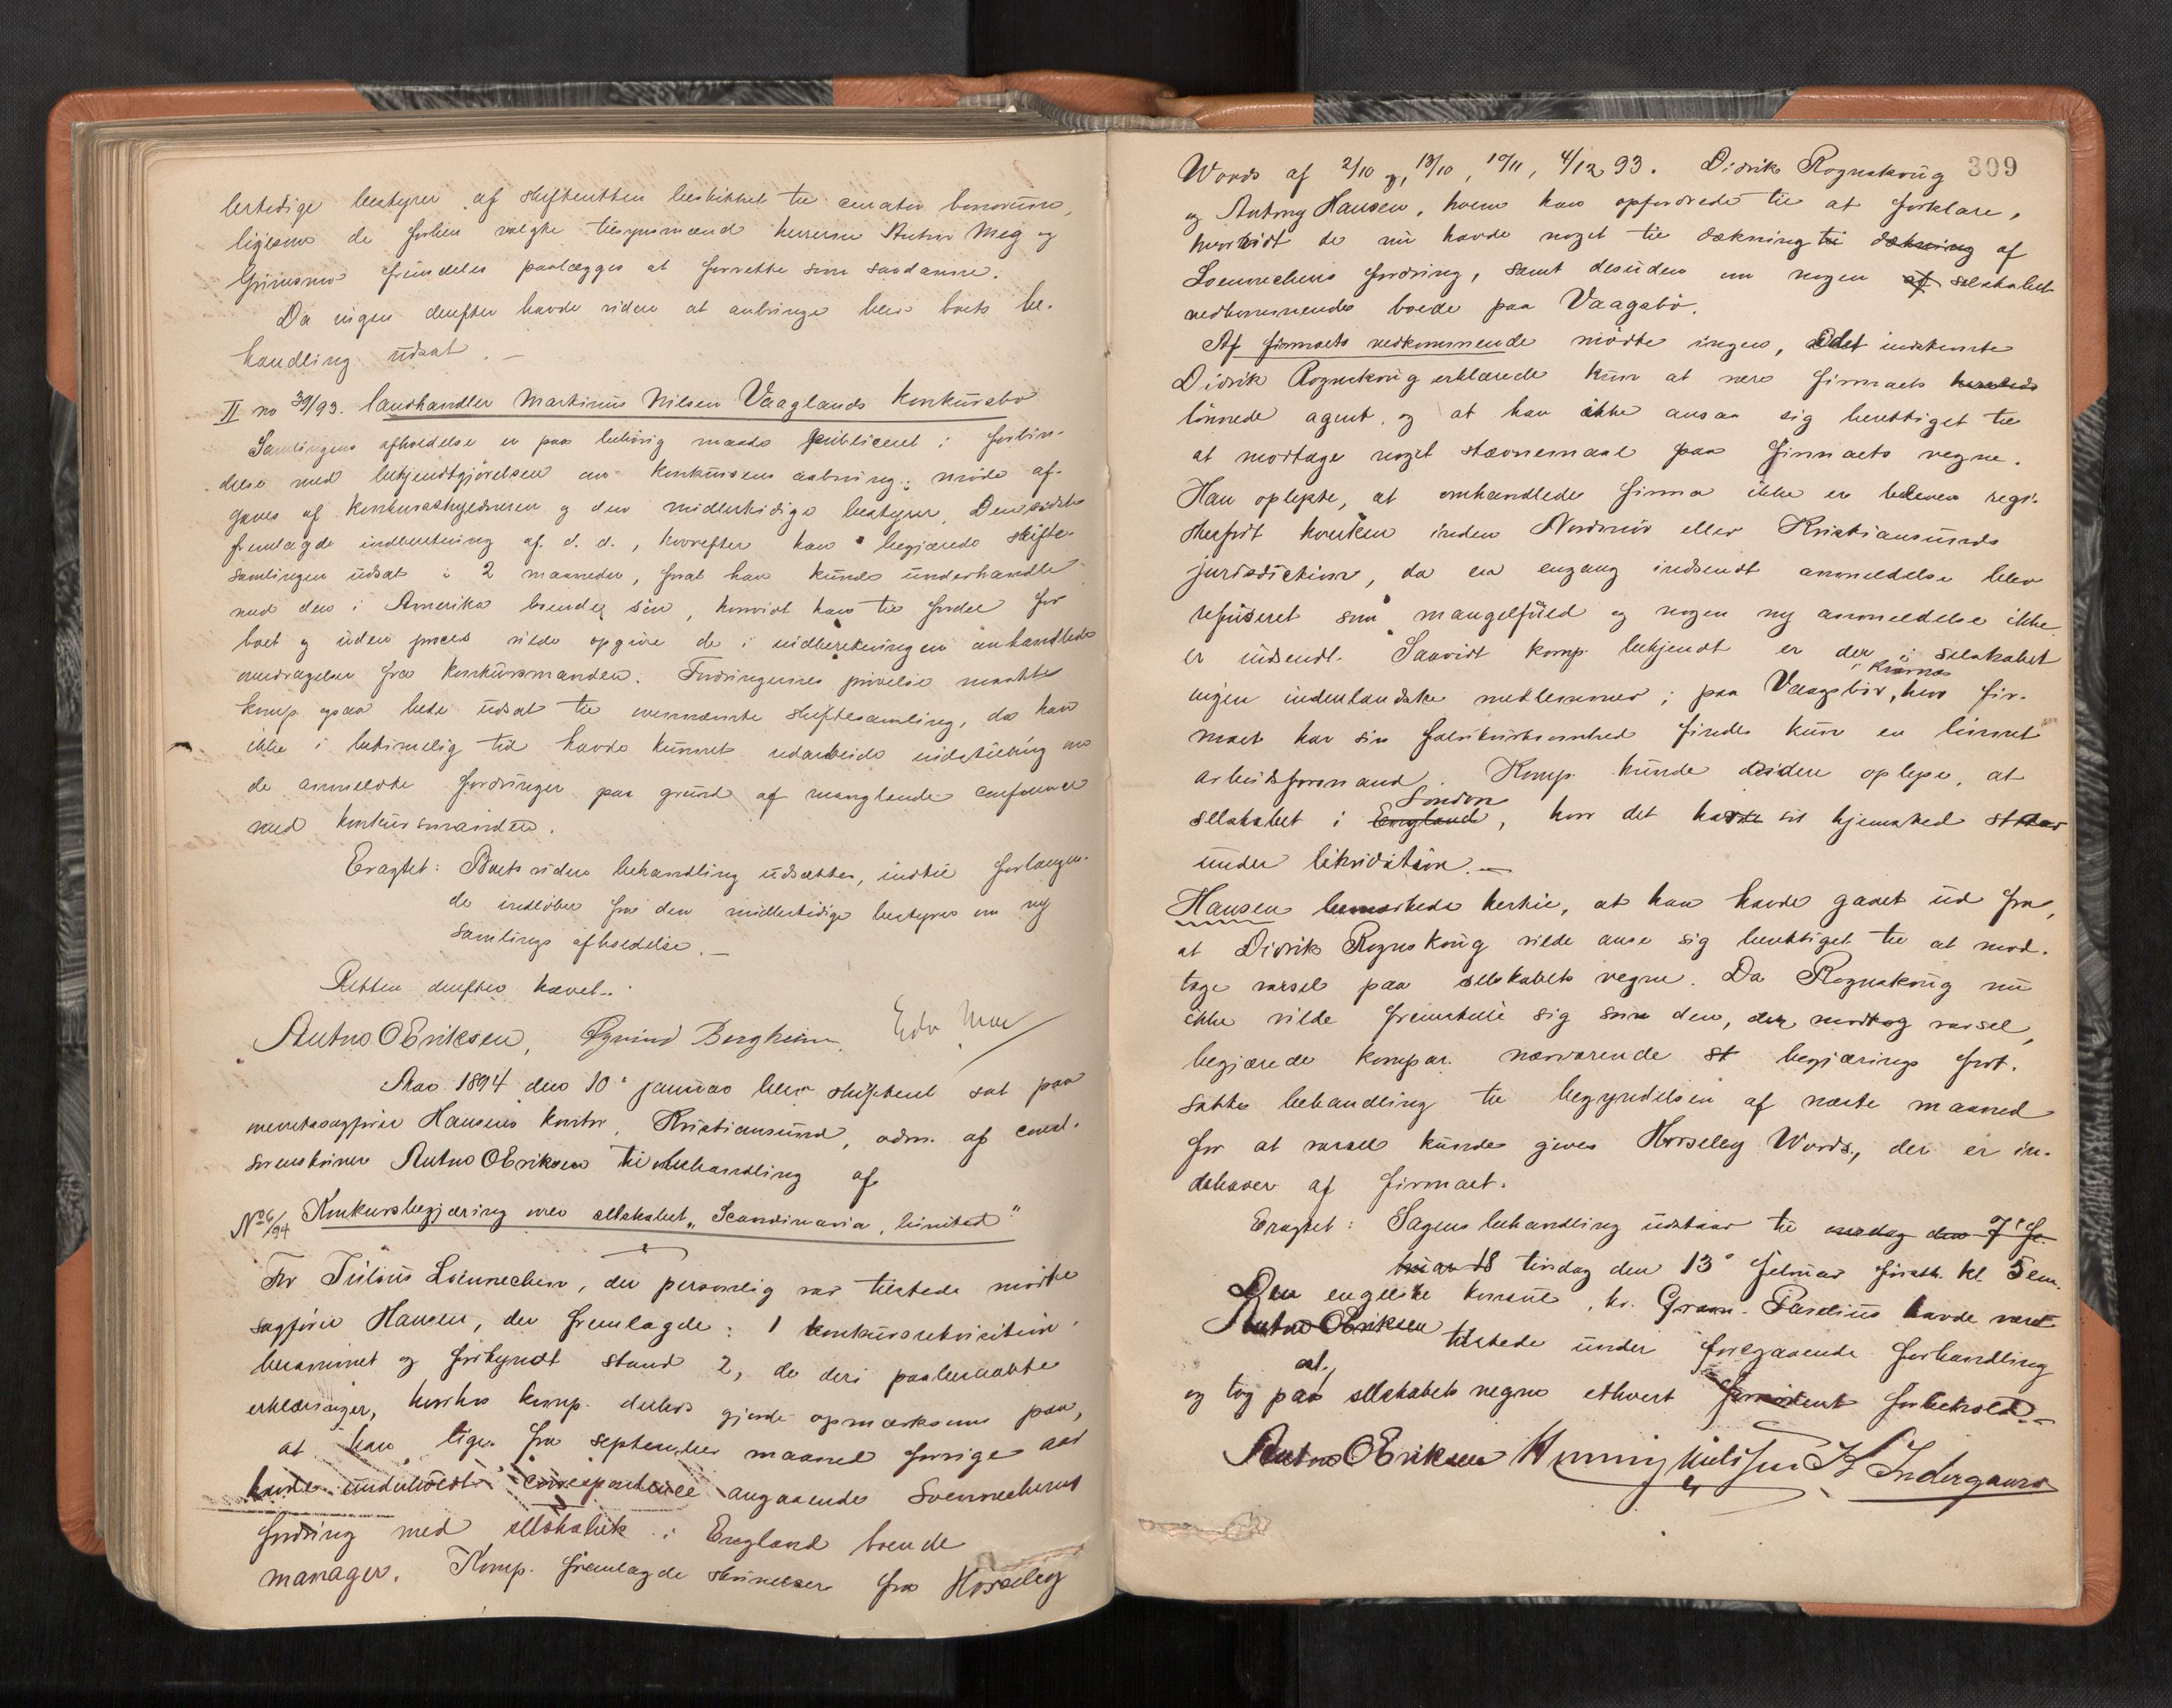 lertidige bestyrer af skifteretten beskikket til curator bonorum,
ligesom de forhen valgte tilsynsmænd herrerne Anton Meg og
Grimsmo fremdeles paalægges at forrette som saadanne.
Da ingen derefter havde videre at anbringe blev boets be-
handling udsat. —
II no 39/93. landhandler Martinus Nilsen Vaaglands konkursbo
Samlingens afholdelse er paa behørig maade publiceret i forbin-
delse med bekjendtgjørelsen om konkursens aabning; møde af-
gaves af konkursskyldneren og den midlertidige bestyrer. Den sidste
fremlagde indberetning af d. d., hvorefter han begjærede skifte-
samlingen udsat i 2 maaneder, forat han kunde underhandle
med den i Amerika boende søn, hvorvidt han til fordel for
boet og uden proces vilde opgive de i indberetningen omhandlede
overdragelser fra konkursmanden. Fordringernes prøvelse maatte
komp. ogsaa bede udsat til ovennævnte skiftesamling, da han
ikke i betimelig tid havde kunnet udarbeide indstilling om
de anmeldte fordringer paa grund af manglende conferance
med konkursmanden.
Eragtet: Boets videre behandling udsættes, indtil forlangen-
de indløber fra den midlertidige bestyrer om ny
samlings afholdelse. —
Retten derefter hævet.
Anton O Eriksen, Øyvind Bergheim. Edv Moe
Aar 1894 den 10' januar blev skifteret sat paa
overretssagfører Hansens kontor, Kristiansund, adm. af const.
sorenskriver Anton O Eriksen til behandling af
No 6/94 Konkursbegjæring over selskabet „Scandinavia, limited"
For Julius Loennechen, der personlig var tilstede mødte
sagfører Hansen, der fremlagde: 1 konkursrekvisition
berammet og forkyndt samt 2, de deri paaberaabte
erklæringer, hvorhos komp. derhos gjorde opmærksom paa,
at han lige fra september maaned forrige aar
havde underholdt correspondence angaaende Loennechens
fordring med selskabets i England boende
manager. Komp. fremlagde skrivelser fra Horseley
Words af 2/10 og, 13/10, 10/11, 4/12 93. Didrik Rognskoug 309
og Antony Hansen, hvem han opfordrede til at forklare,
hvorvidt de nu havde noget til dækning til dækning af
Loennechens fordring, samt desuden om nogen af selskabet
vedkommende boede paa Vaagsbø.
Af firmaets vedkommende mødte ingen, idet indstævnte
Didrik Rognskoug erklærede kun at være firmaets
lønnede agent, og at han ikke ansaa sig berettiget til
at modtage noget stævnemaal paa firmaets vegne.
Han oplyste, at omhandlede firma ikke er bleven regi-
streret hverken inden Nordmør eller Kristiansunds
jurisdiction, da en engang indsendt anmeldelse blev
refuseret som mangelfuld og nogen ny anmeldelse ikke
er indsendt. Saavidt komp. bekjendt er der i selskabet
ingen indenlandske medlemmer; paa Vaagsbø, hvor fir-
maet har sin fabrikvirksomhed findes kun en lønnet
arbeidsformand. Komp. kunde videre oplyse, at
London
selskabet i England, hvor det havde sit hjemsted
under likvidation. —
Hansen bemærkede hertil, at han havde gaaet ud fra,
at Didrik Rognskoug vilde anse sig berettiget til at mod-
tage varsel paa selskabets vegne. Da Rognskoug nu
ikke vilde fremstille sig som den, der modtog varsel,
begjærede kompar. nærværende st begjærings fort-
satte behandling til begyndelsen af næste maaned
for at varsel kunde gives Horseley Words, der er in-
dehaver af firmaet.
Eragtet: Sagens behandling udstaar til onsdag den 7' fe-
bruar 18 tirsdag den 13' februar førstk. kl. 5 em.
Den engelske konsul, hr. Gram-Parelius havde været
Anton O Eriksen tilstede under foregaaende forhandling
og tog paa selskabets vegne ethvert fornødent forbehold. —
Anton O Eriksen Henning Nielssen K Indergaard